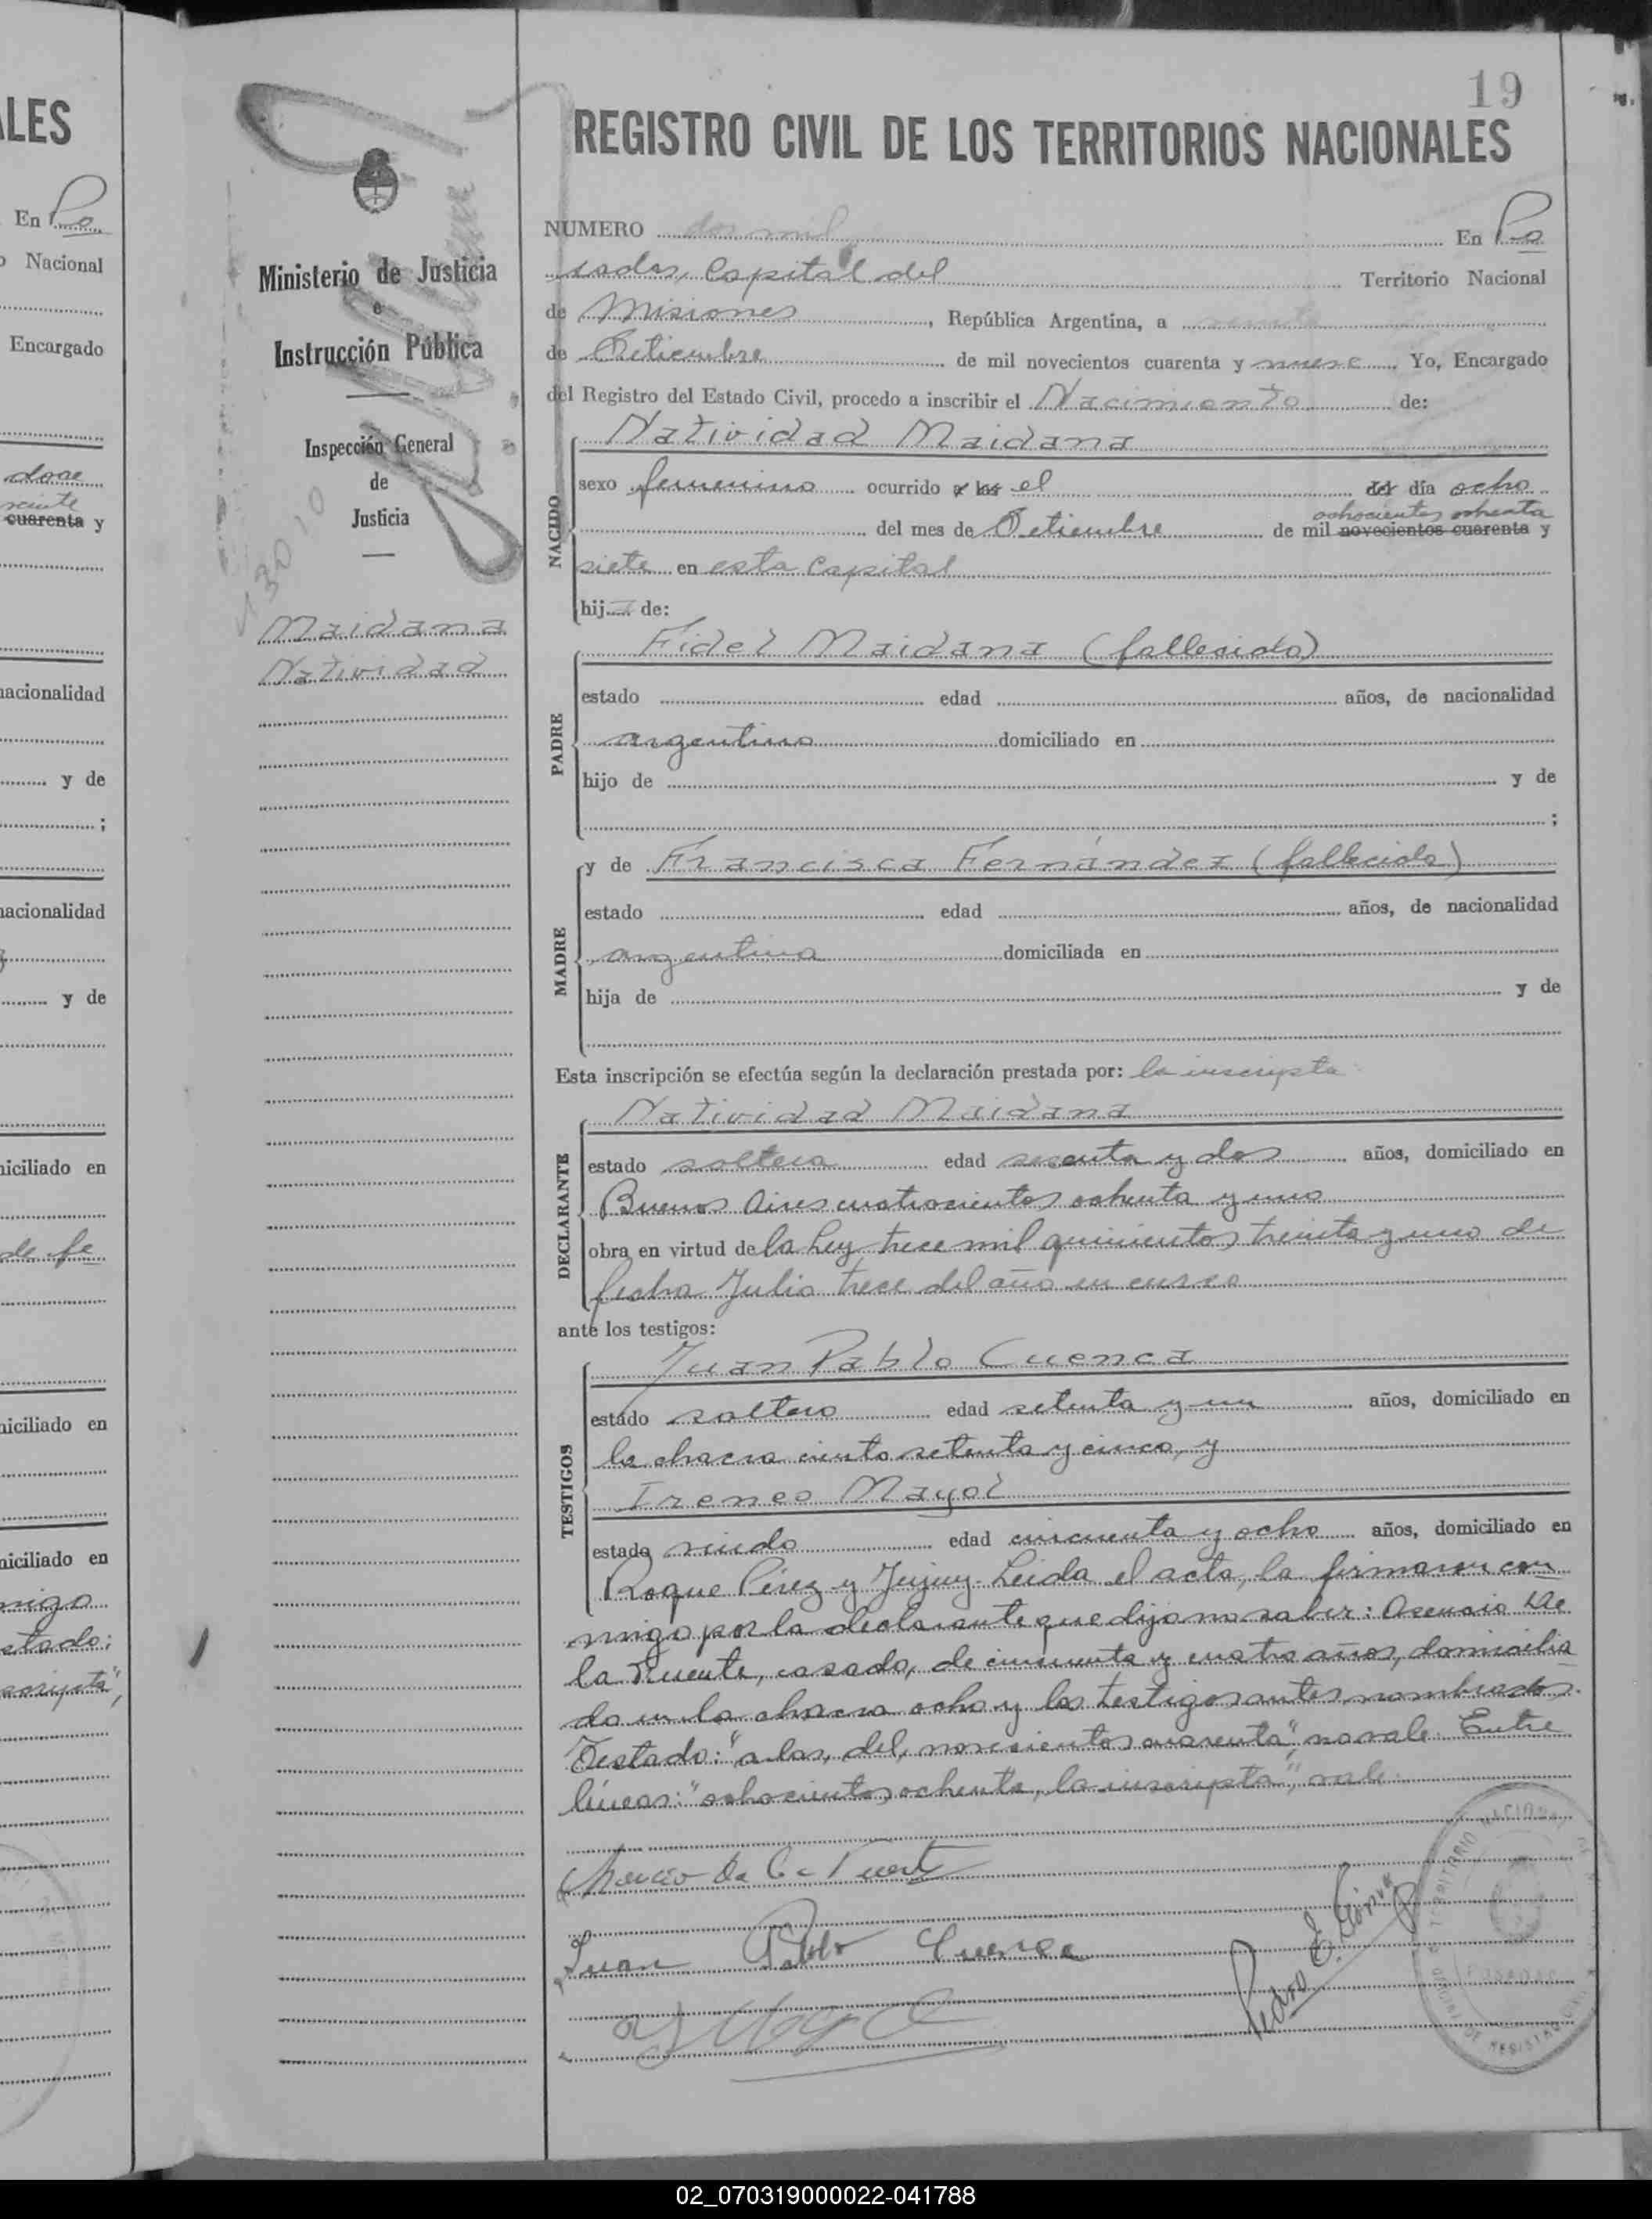 19
REGISTRO CIVIL DE LOS TERRITORIOS NACIONALES
NUMERO dos mil En Po
sadas, Capital del Territorio Nacional
de Misiones, República Argentina, a
de Setiembre de mil novecientos cuarenta y nueve Yo, Encargado
del Registro del Estado Civil, procedo a inscribir el Nacimiento de:
Natividad Maidana
NACIDO
sexo femenino ocurrido a las el del día ocho
ochocientos ochenta
del mes de Setiembre de mil novecientos cuarenta y
siete en esta Capital
hija de:
PADRE
Fidel Maidana (fallecido)
estado edad años, de nacionalidad
argentino domiciliado en
hijo de y de
;
MADRE
y de Francisca Fernández (fallecida)
estado edad años, de nacionalidad
argentina domiciliada en
hija de y de
Esta inscripción se efectúa según la declaración prestada por: la inscripta
DECLARANTE
Natividad Maidana
estado soltera edad sesenta y dos años, domiciliado en
Buenos Aires cuatrocientos ochenta y uno
obra en virtud de la Ley trece mil quinientos treinta y uno de
fecha Julio trece del año en curso
ante los testigos:
TESTIGOS
Juan Pablo Cuenca
estado soltero edad setenta y un años, domiciliado en
la chacra ciento setenta y cinco, y
Ireneo Mayol
estado viudo edad cincuenta y ocho años, domiciliado en
Roque Pérez y Jujuy. Leida el acta, la firmaron con
migo por la declarante que dijo no saber: Asencio De
la Puente, casado, de cincuenta y cuatro años, domicilia
do en la chacra ocho y los testigos antes nombrados.
Testado: "a las, del, novecientos cuarenta", no vale. Entre
líneas: "ochocientos ochenta, la inscripta", vale.
Juan Pablo Cuenca
Ministerio de Justicia
e
Instrucción Pública
Inspección General
de
Justicia
Maidana
Natividad
LES
En Po
Nacional
Encargado
doce
veinte
cuarenta y
nacionalidad
y de
;
nacionalidad
y de
niciliado en
de fe
niciliado en
niciliado en
migo
stado:
scripta",
02_070319000022-041788